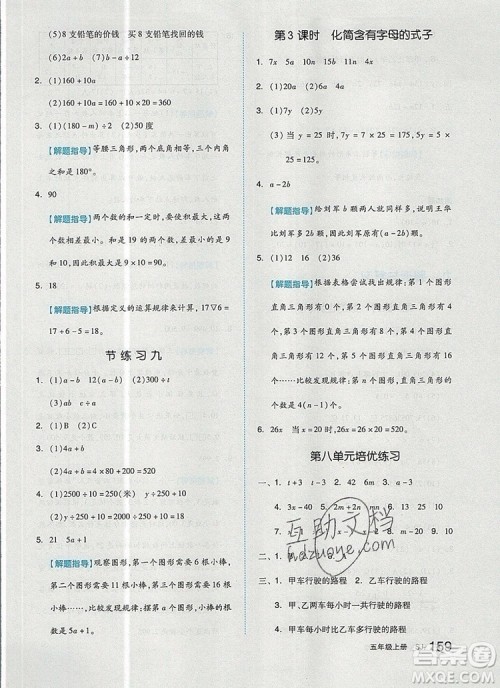 (5)8 支铅笔的价钱　买 8 支铅笔找回的钱
(6)2a÷h　(7)a-b÷12
2. (1)160+10a
(2)160+10a=160+10×15=310
3. (1)(180-m)÷2　(2)50 度
【解题指导】等腰三角形,两个底角相等,三个内角的和是
180°。
4. 90
【解题指导】两个数的和一定时,要使积最大,这两
个数相差最小。和是 19,这两个数分别是 9 和
10。因此积最大是 9×10=90。
5. 18
【解题指导】根据定义的运算规律来计算。17▽6=
17+6-5=18。
节 练 习 九
1. (1)a-b　12a-12b　(2)300÷t
(3)ab　c÷a
2. (1)B　(2)C
3. (1)4a+b
(2)4a+b=4×10+2=42
4. (1)10a÷250=250(米)　y÷250=
(2)
5. 21　5a+1
【解题指导】观察图形,第一个图形需要 6 根小棒,
第二个图形需要 11 根小棒,第三个图形需要 16 根
小棒……比较发现规律:第 a 个图形需要小棒
(5a+1)根。
第 3 课时　化简含有字母的式子
1. 7x　5a　10y　15b　20k　11n
2. (1)7y　(2)y
(3) 当 y=25 时,7y=7×25=175　y=
25。
3. a-2b
【解题指导】给刘军 b 颗两人就同样多,说明王华
比刘军多 2b 颗。因此刘军原来有(a-2b)颗。
4.
【解题指导】根据表格尝试找出规律,第 1 个图形
直角三角形有 0 个,第 2 个图形直角三角形有 4
个,第 3 个图形直角三角形有 8 个,第 4 个图形直
角三角形有 12 个,第 5 个图形直角三角形有 16
个……,比较发现规律:第 n 个图形,直角三角形的
个数是 4(n-1)个。
5. 26x　当 x=20 时,26x=26×20=520。
第八单元培优练习
一、1. t+3　t-3　2. 4a　3.
4. 8x　2x　5. 2m+2n　mn　6. 9　27
7. 10　8. 9y　9. 4　10. 23
二、1.
三、1. 甲车行驶的路程　2. 乙车行驶的路程
3. 甲、乙两车一共行驶的路程
4. 甲车每小时比乙车多行驶的路程
五年级上册　SJ　159
互助文档
huzuoye.com
答案圈